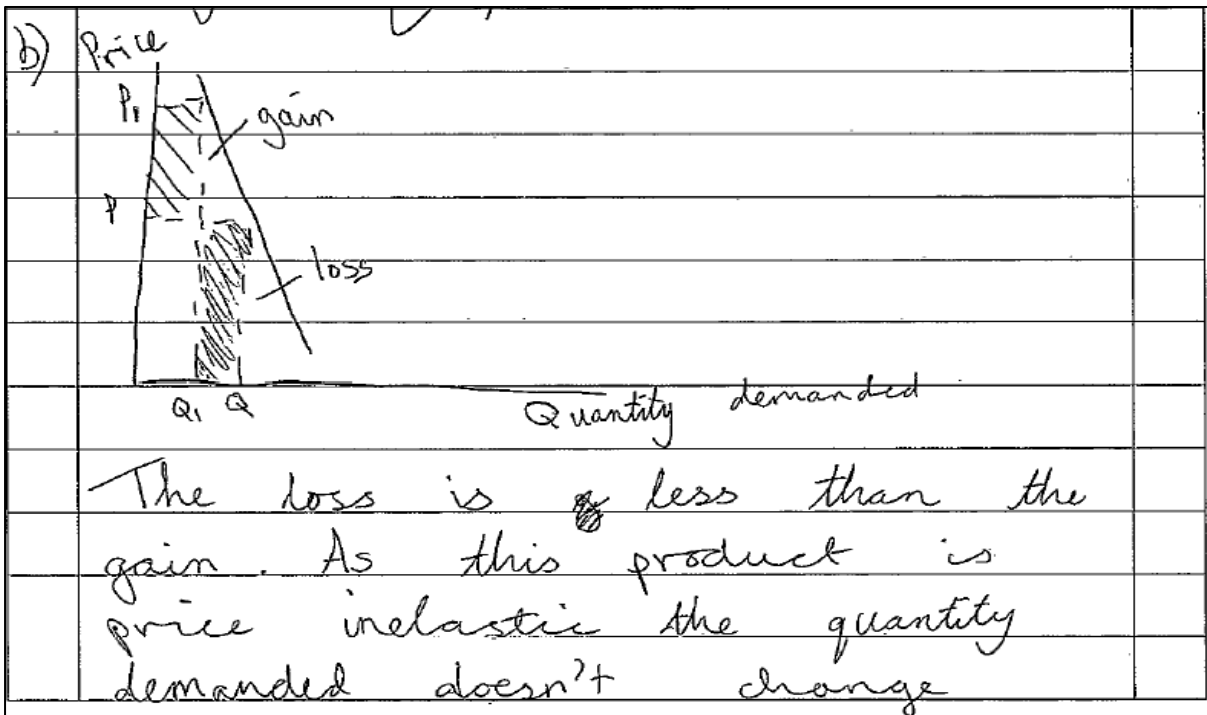 b)
Price
P₁
gain
P
loss
Q₁ Q
Quantity demanded
The loss is less than the
gain. As this product is
price inelastic the quantity
demanded doesn't change